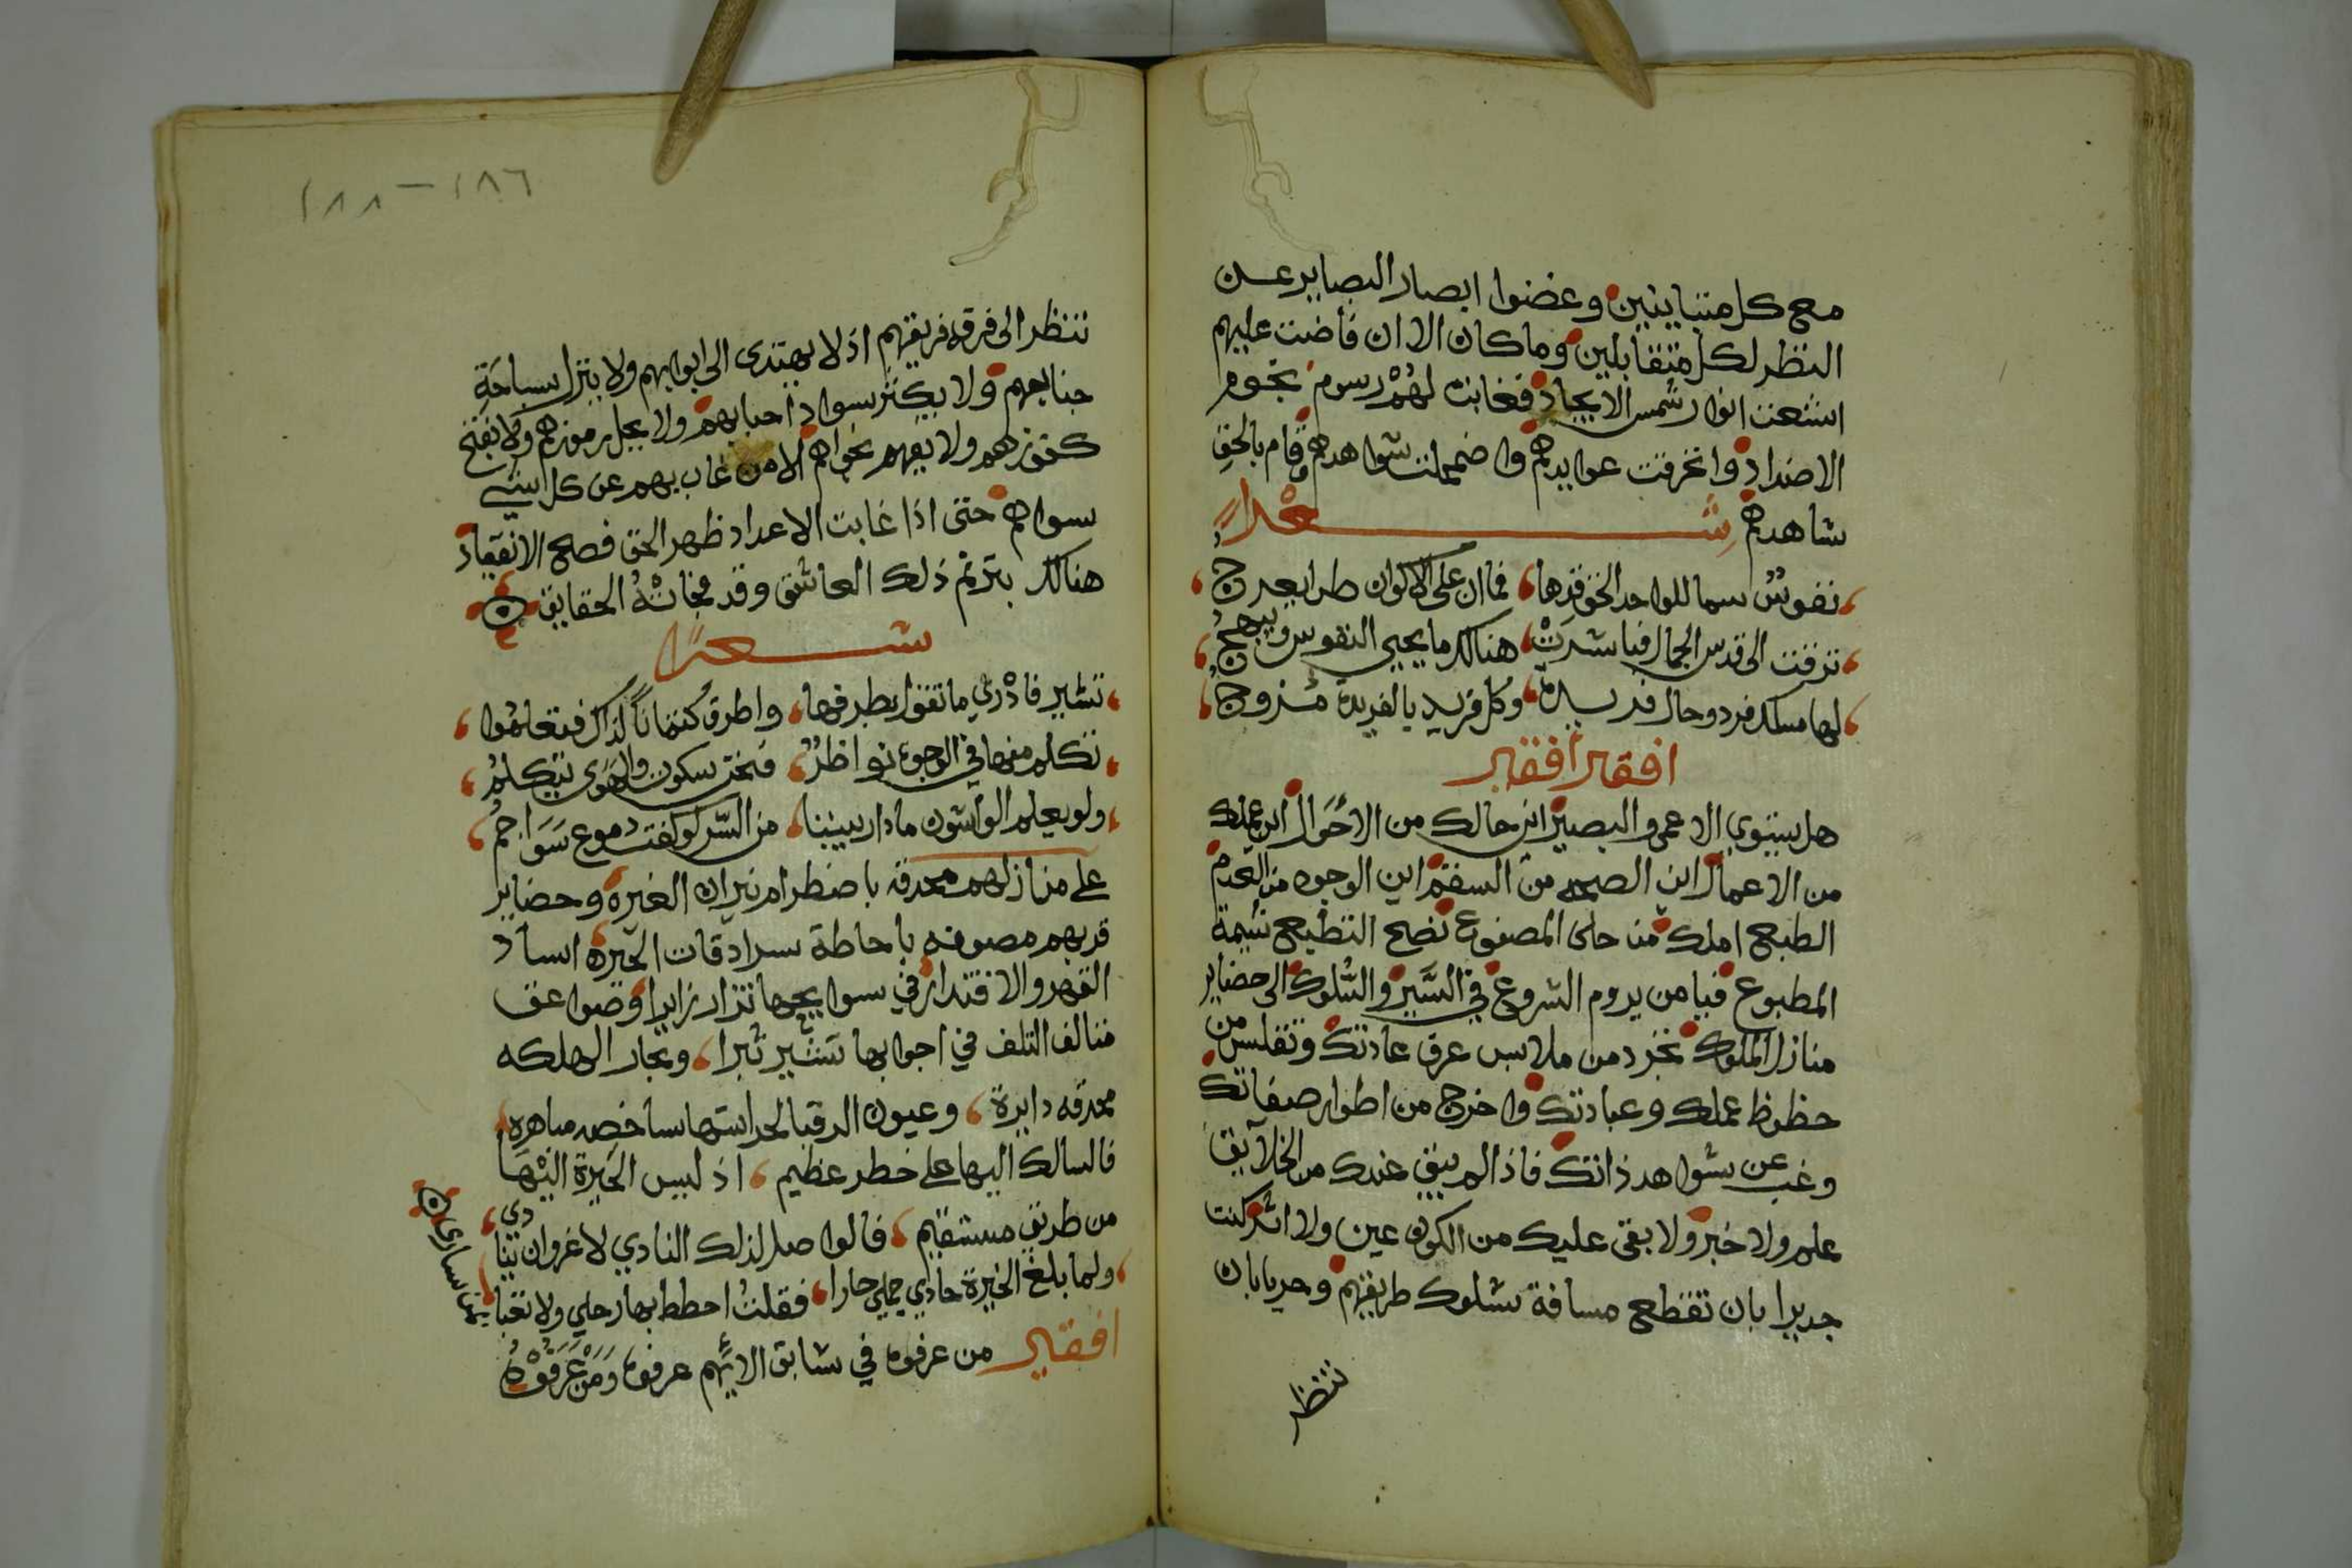 مع كل متباينين وغضوا ابصار البصاير عن
النظر لكل متقابلين وما كان الا ان فاضت عليهم
اشعت انوار شمس الايجاد فغابت لهم رسوم نجوم
الاضداد وانخرقت عوايدهم واضمحلت شواهدهم وقام بالحق
شاهدهم شعرا
نفوس سما للواحد الحق قدها فما ان على الاكوان طرا يعرج
ترقت الى قدس الجمال فباشرت هنالك ما يحيي النفوس ويبهج
لها مسلك فرد وحال فريدة وكل فريد بالفريدة مزوج
افقير افقير
هل يستوي الاعمى والبصير اين حالك من الاحوال اين عملك
من الاعمال اين الصحه من السقم اين الوجود من العدم
الطبع املك من حلى المصنوع نضح التطبع شيمة
المطبوع فيا من يروم الشروع في السير والسلوك الى حضاير
منازل الملوك تجرد من ملابس عرق عادتك وتفلس من
حظوظ عملك وعبادتك واخرج من اطوار صفاتك
وغب عن شواهد ذاتك فاذا لم يبق عندك من الخلايق
علم ولا خبر ولا بقى عليك من الكون عين ولا اثر كنت
جديرا بان تقطع مسافة سلوك طريقهم وحريا بان
تنظر
١٨٦ - ١٨٨
تنظر الى فرقه فريقهم اذ لا يهتدى الى ابوابهم ولا ينزل بساحة
جنابهم ولا يكثر سواد احبابهم ولا يحل رموزهم ولا يفتح
كنوزهم ولا يفهم نجواهم الا من غاب بهم عن كل شيء
سواهم حتى اذا غابت الاعداد ظهر الحق فصح الانقياد
هنالك يترنم ذلك العاشق وقد فجاته الحقايق
شعرا
تشير فادري ما تقول بطرفها واطرق كتمانا لذاك فتعلموا
تكلم منها في الوجوه نواظر فنحن سكوت والهوى يتكلم
ولو يعلم الواشون ما دار بيننا من السر لو كفت دموع سواجم
على منازلهم محدقه باضطرام نيران الغيرة وحضاير
قربهم مصونه باحاطة سرادقات الحيرة اساد
القهر والاقتدار في سوايجها تزار زايرا وصواعق
متالف التلف في اجوابها تشير ثبرا وبحار الهلكه
محدقه دايرة وعيون الرقبا لحراستها ساخصه ساهرة
فالسالك اليها على خطر عظيم اذ ليس الحيرة اليها
من طريق مستقيم قالوا صل لذلك النادي لا غروان تنادي
ولما بلغ الخيرة حادي جملي حارا فقلت احطط بها رحلي ولا تعبا بمن سارى
افقير من عرفوه في سابق الايهم عرفوه ومن عرفوه